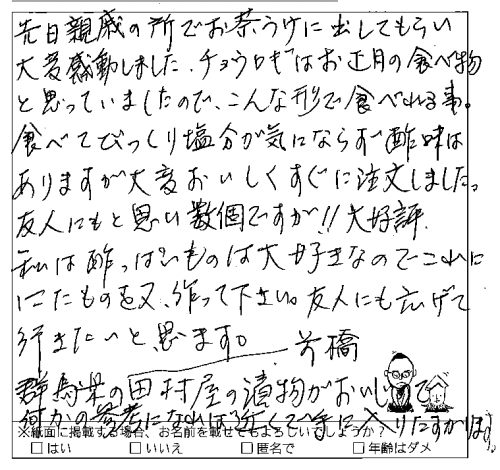 先日親戚の所でお茶うけに出してもらい
大変感動しました、チョウロギはお正月の食べ物
と思っていましたので、こんな形で食べれる事。
食べてびっくり塩分が気にならず酢味は
ありますが大変おいしくすぐに注文しました。
友人にもと思い数個ですが!!大好評
私は酢っぱいものは大好きなのでこれに
にたものを又、作って下さい。友人にも広げて
行きたいと思います。 前橋
群馬県の田村屋の漬物がおいしいので
何かの参考になれば近くで手に入りますがはず
※紙面に掲載する場合、お名前を載せてもよろしいでしょうか?
□はい □いいえ □匿名で □年齢はダメ